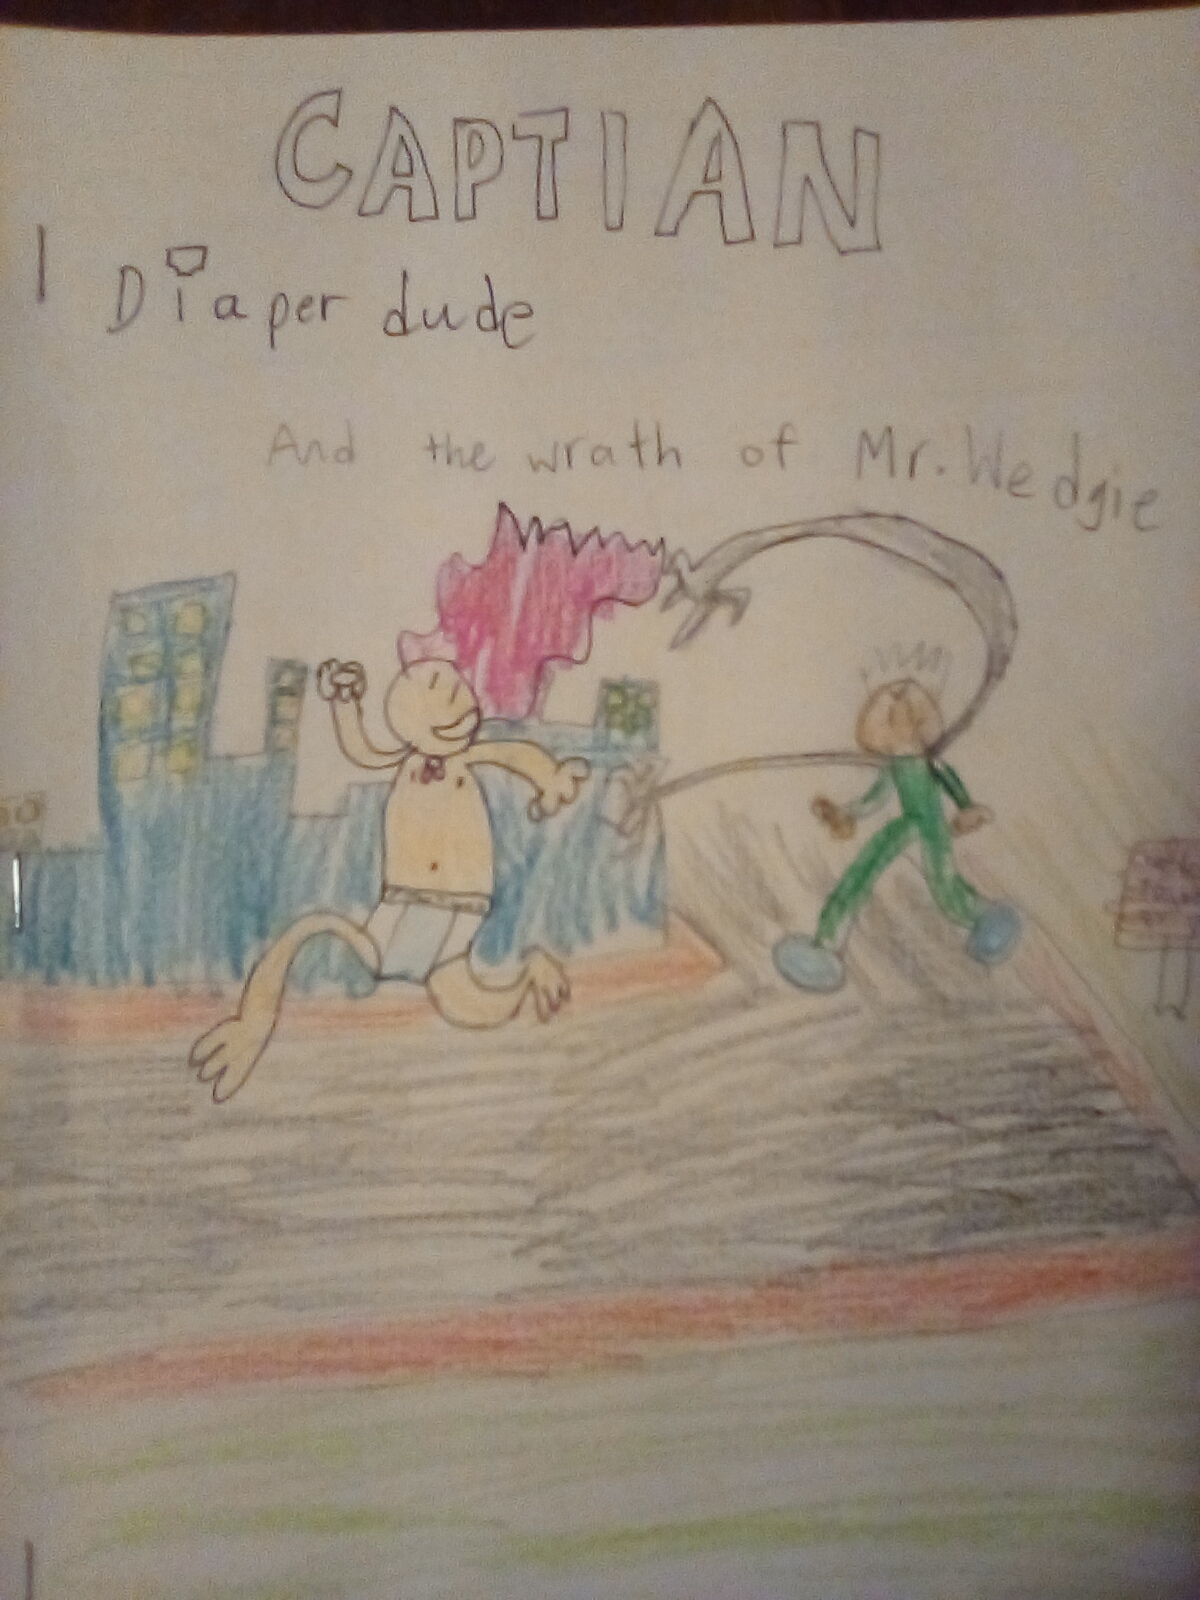 CAPTIAN
Diaper dude
And the wrath of Mr. Wedgie